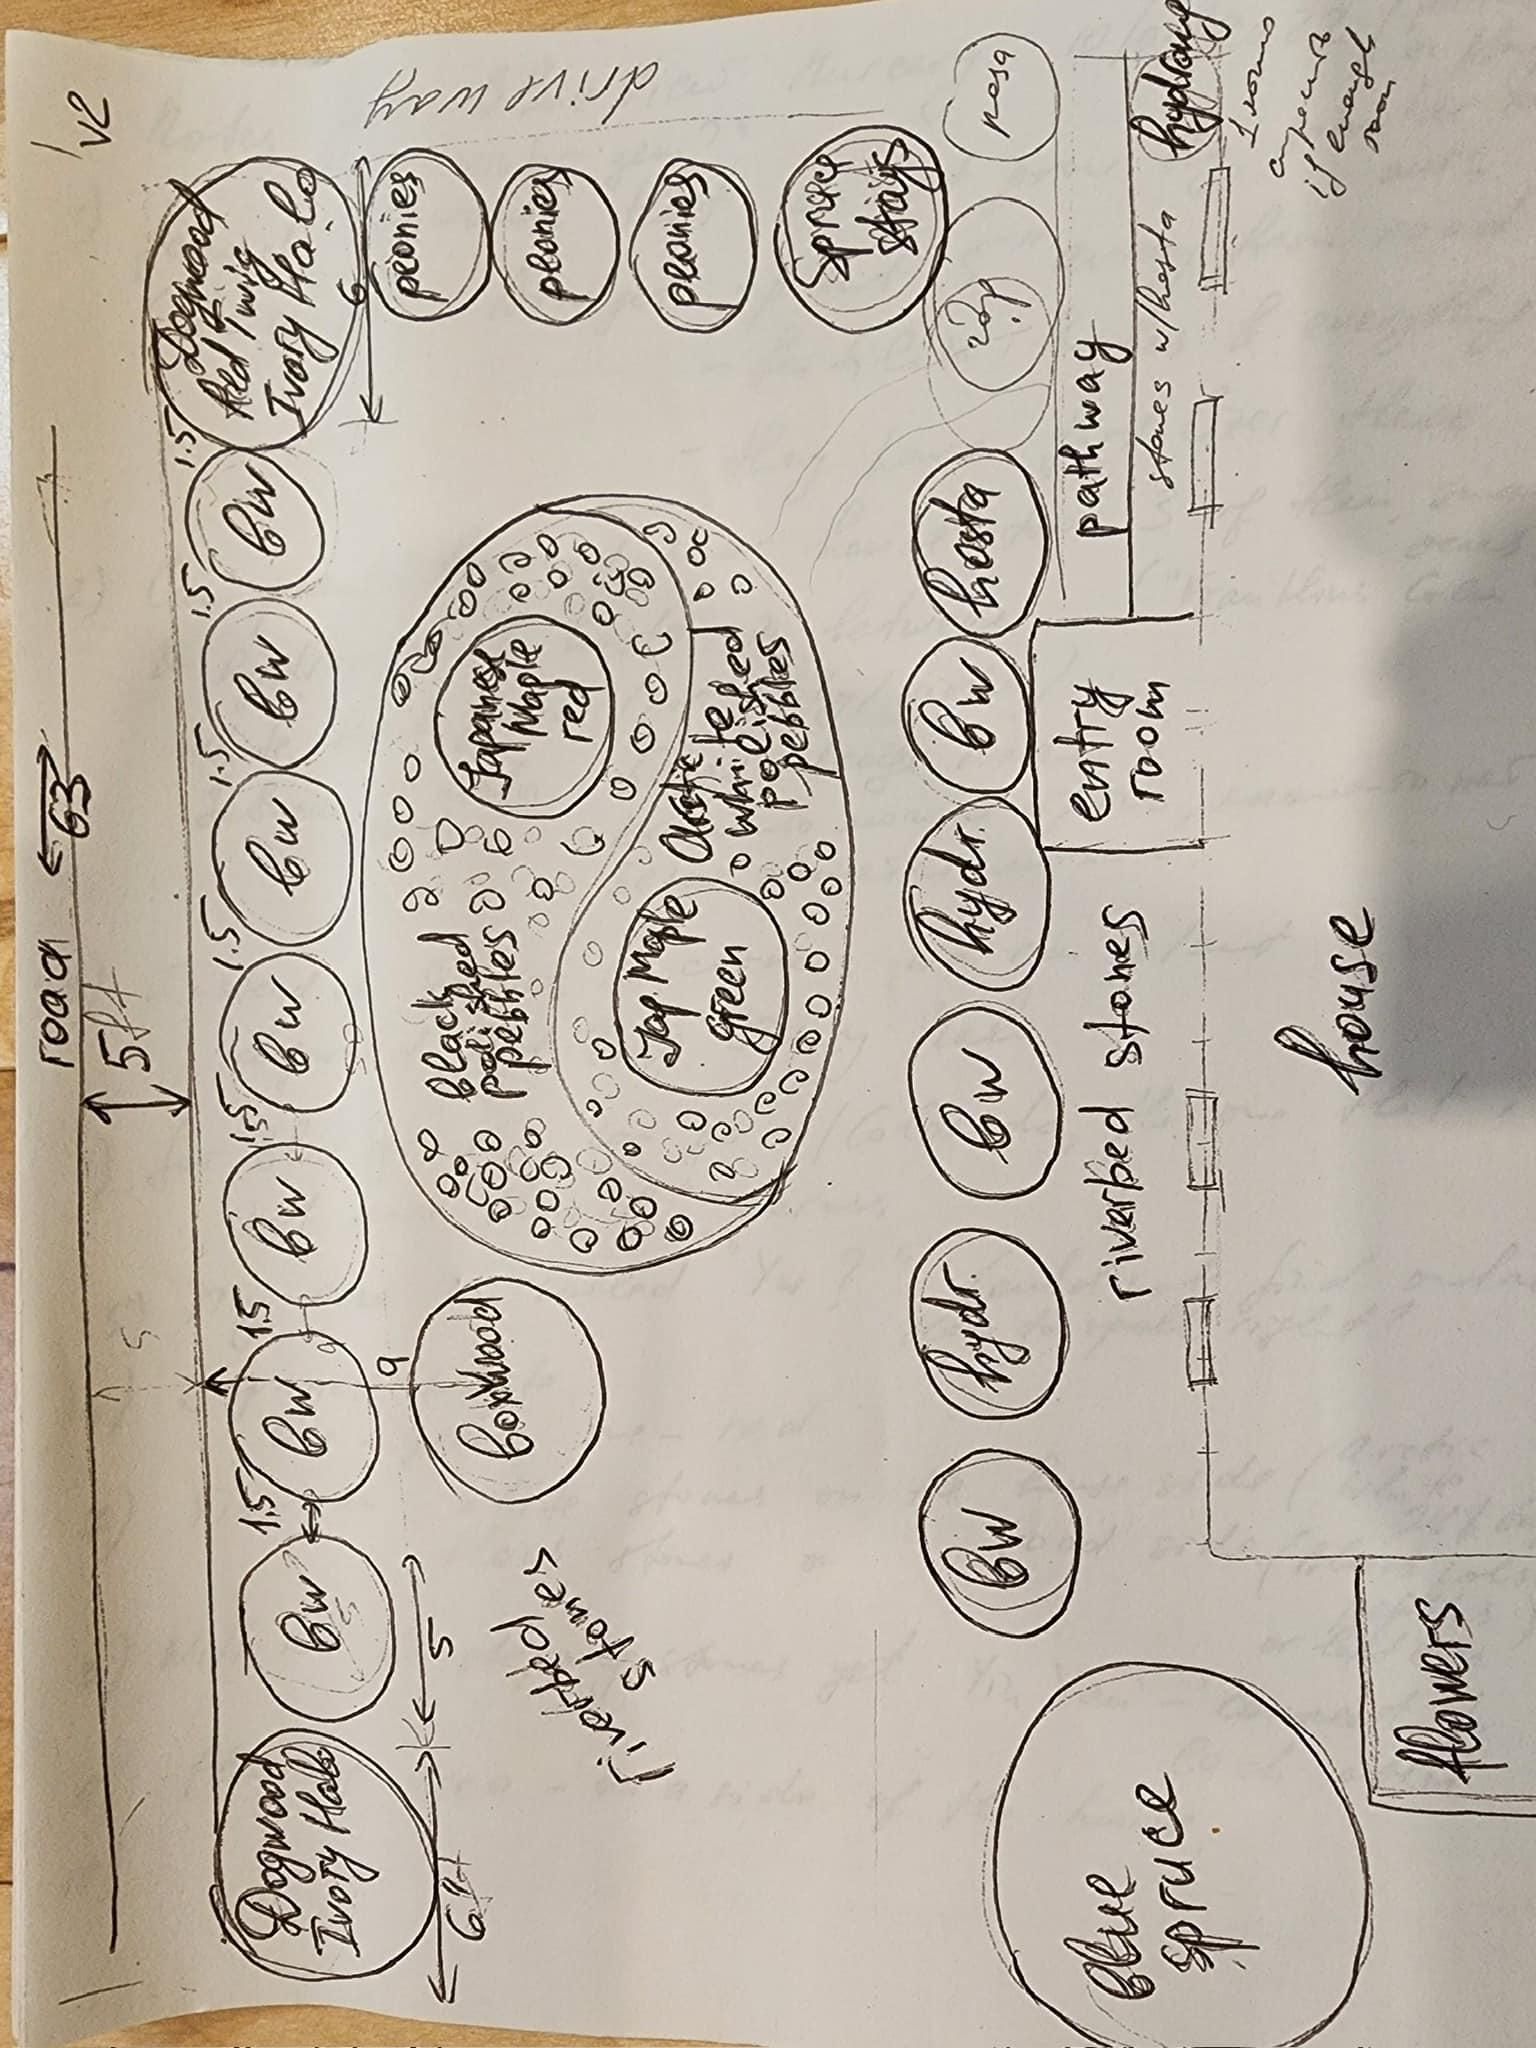 v2
drive way
road
63
5ft
5
Dogwood
Red Twig
Ivory Halo
6
peonies
peonies
peonies
Spruce
stays
1.5
bw
1.5
bw
1.5
bw
1.5
bw
1.5
bw
1.5
bw
1.5
bw
Dogwood
Ivory Halo
6ft
5
9
Boxwood
riverbed
stones
Japanese
Maple
red
black
polished
pebbles
Jap Maple
green
Arctic
white
polished
pebbles
hosta
bw
hydr.
bw
hydr.
bw
pathway
stones w/hosta
hydrang
if enough
room
entry
room
riverbed stones
house
Blue
Spruce
flowers